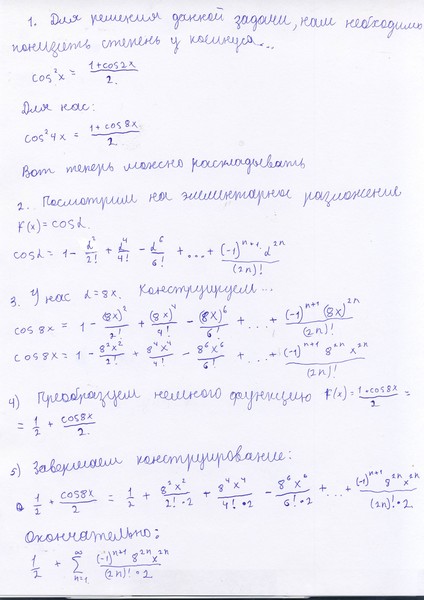 1. Для решения данной задачи, нам необходимо
понизить степень у косинуса...
cos²x = (1+cos2x)/2.
Для нас:
cos²4x = (1+cos8x)/2
Вот теперь можно раскладывать
2. Посмотрим на элементарное разложение
F(x) = cosα.
cosα = 1 - α²/2! + α⁴/4! - α⁶/6! + ... + (-1)ⁿ⁺¹ α²ⁿ/(2n)!
3. У нас α = 8x. Конструируем...
cos8x = 1 - (8x)²/2! + (8x)⁴/4! - (8x)⁶/6! + ... + (-1)ⁿ⁺¹ (8x)²ⁿ/(2n)!
cos8x = 1 - 8²x²/2! + 8⁴x⁴/4! - 8⁶x⁶/6! + ... + (-1)ⁿ⁺¹ 8²ⁿ x²ⁿ/(2n)!
4) Преобразуем немного функцию F(x) = (1+cos8x)/2 =
= 1/2 + cos8x/2.
5) Завершаем конструирование:
1/2 + cos8x/2 = 1/2 + 8²x²/2!·2 + 8⁴x⁴/4!·2 - 8⁶x⁶/6!·2 + ... + (-1)ⁿ⁺¹ 8²ⁿ x²ⁿ/(2n)!·2
Окончательно:
1/2 + ∑ₙ₌₁^∞ (-1)ⁿ⁺¹ 8²ⁿ x²ⁿ/(2n)!·2